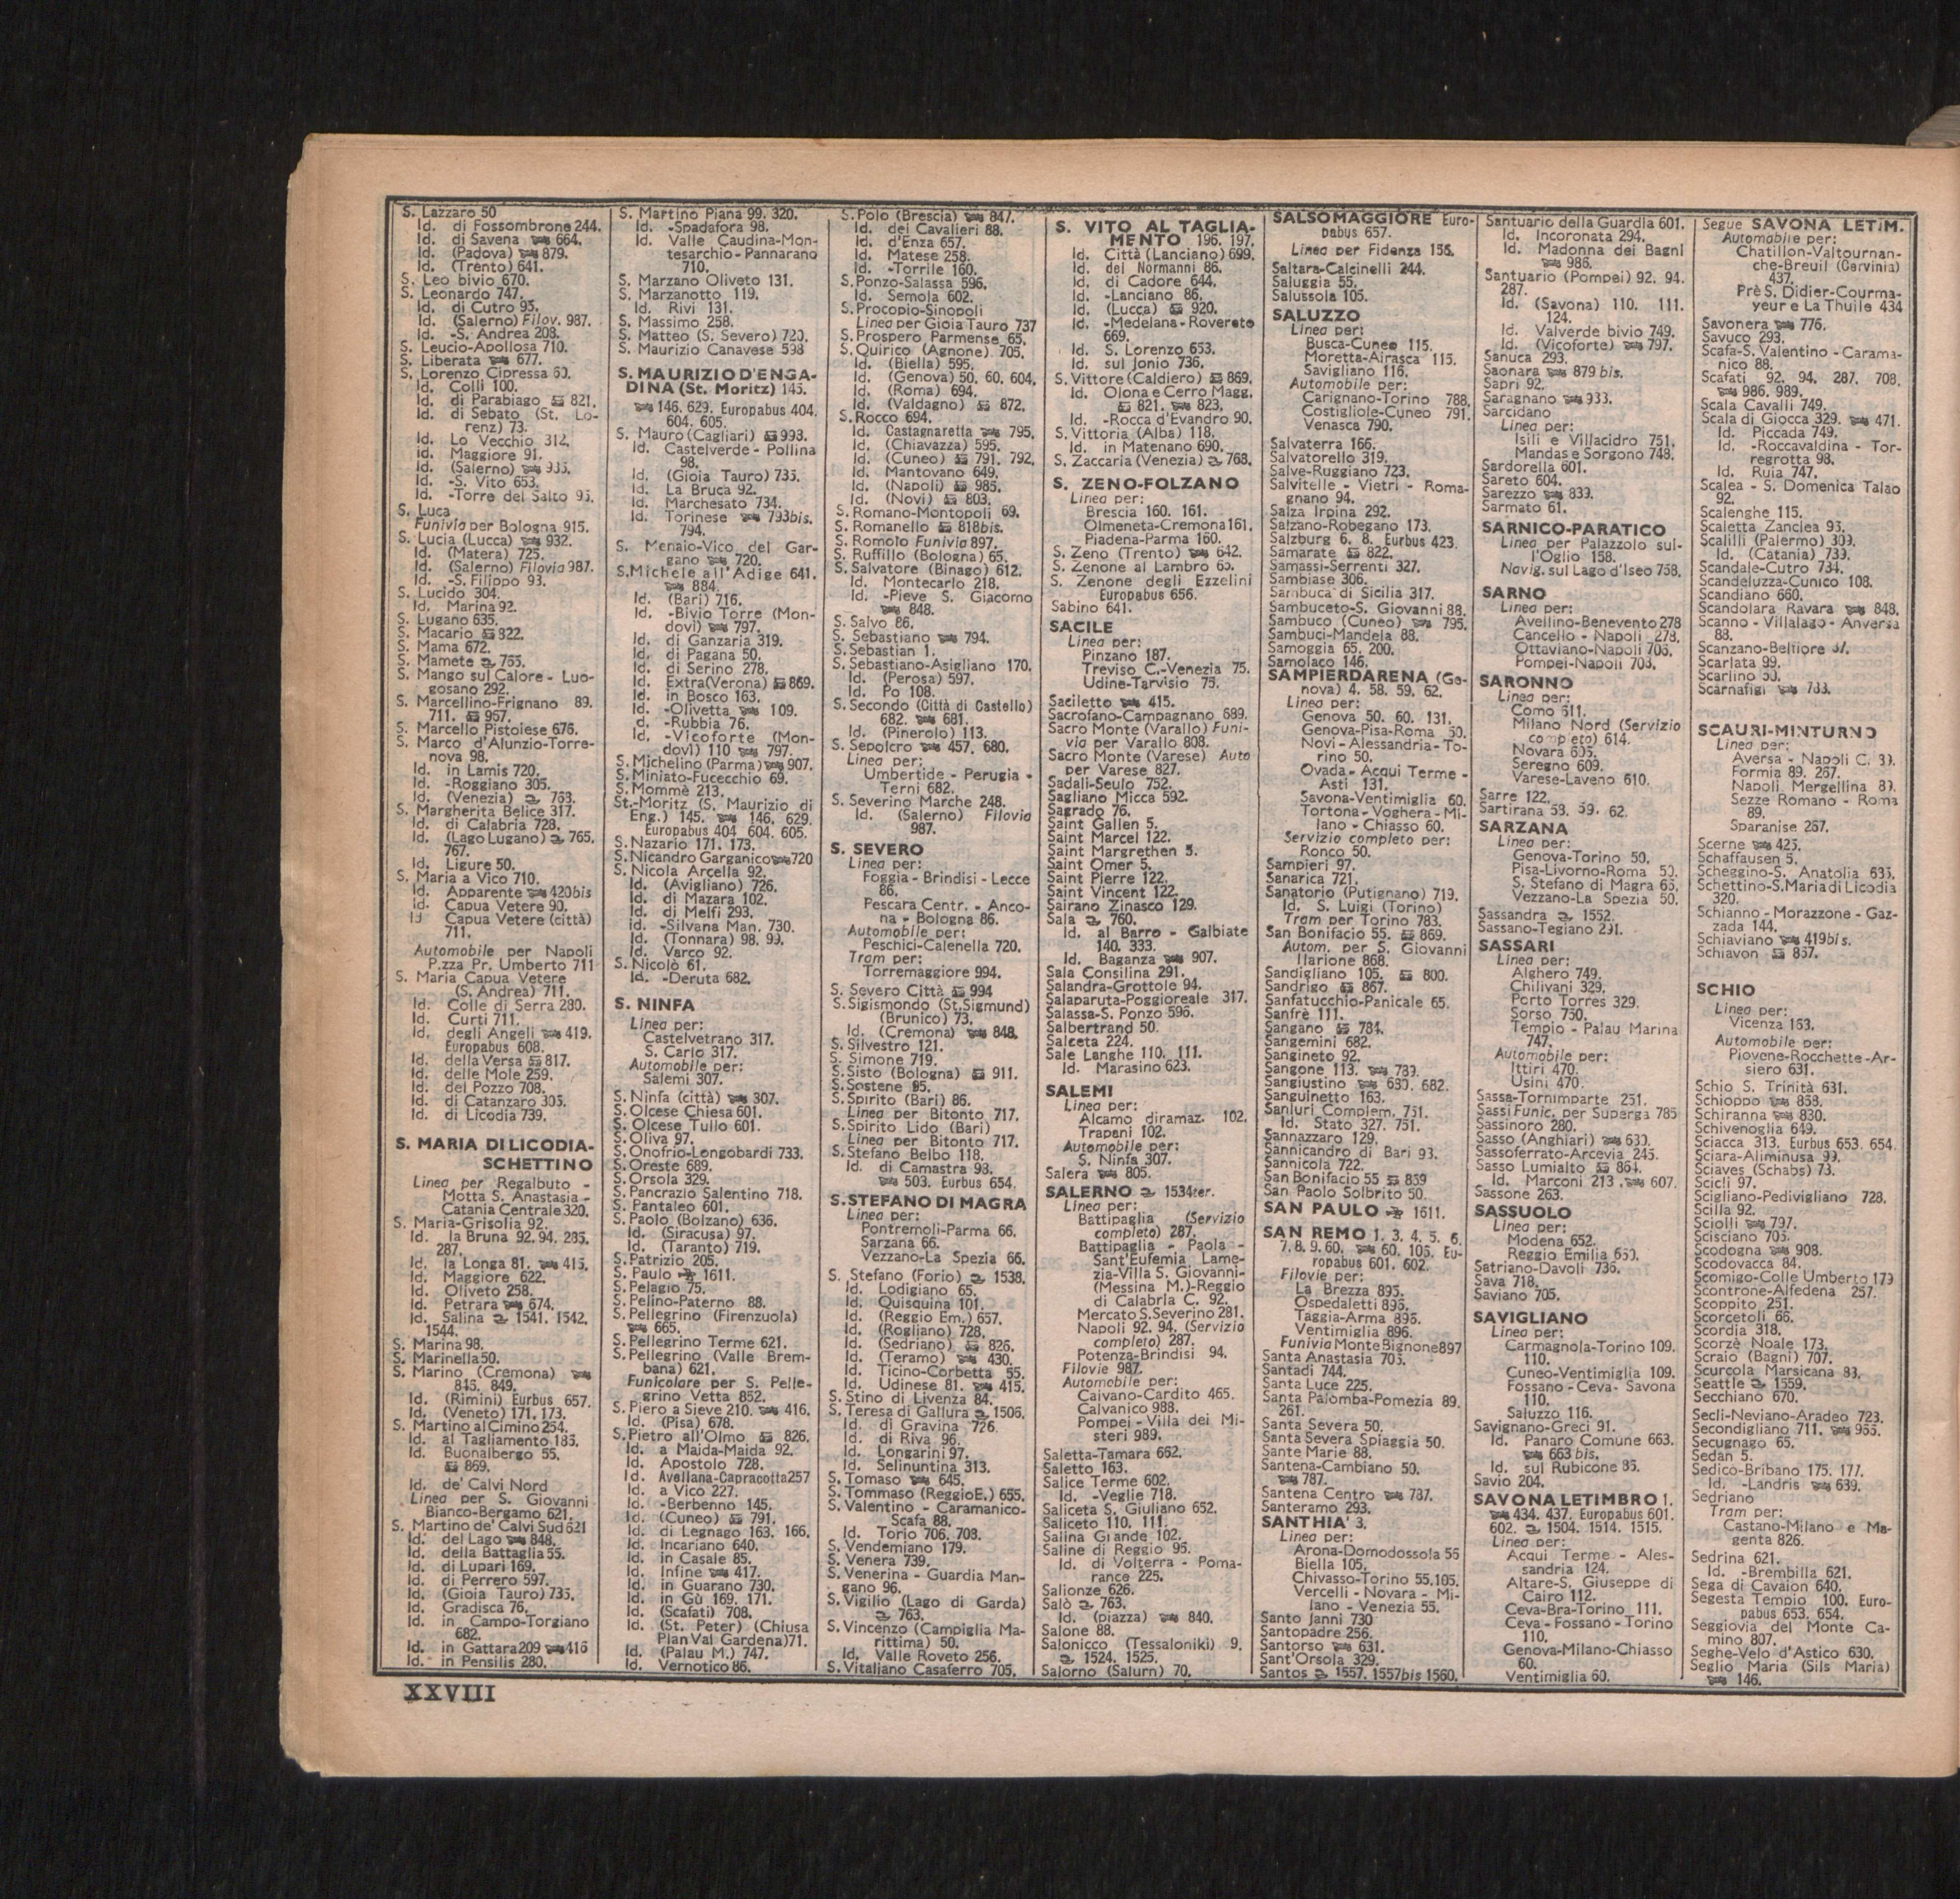 S. Lazzaro 50
Id. di Fossombrone 244.
Id. di Savena 664.
Id. (Padova) 879.
Id. (Trento) 641.
S. Leo bivio 670.
S. Leonardo 747.
Id. di Cutro 95.
Id. (Salerno) Filov. 987.
Id. -S. Andrea 208.
S. Leucio-Apollosa 710.
S. Liberata 677.
S. Lorenzo Cipressa 60.
Id. Colli 100.
Id. di Parabiago 821.
Id. di Sebato (St. Lo-
renz) 73.
Id. Lo Vecchio 312.
Id. Maggiore 91.
Id. (Salerno) 935.
Id. -S. Vito 653.
Id. -Torre del Salto 95.
S. Luca
Funivia per Bologna 915.
S. Lucia (Lucca) 932.
Id. (Matera) 725.
Id. (Salerno) Filovia 987.
Id. -S. Filippo 93.
S. Lucido 304.
Id. Marina 92.
S. Lugano 635.
S. Macario 822.
S. Mama 672.
S. Mamete 765.
S. Mango sul Calore - Luo-
gosano 292.
S. Marcellino-Frignano 89.
711. 957.
S. Marcello Pistoiese 676.
S. Marco d'Alunzio-Torre-
nova 98.
Id. in Lamis 720.
Id. -Roggiano 305.
Id. (Venezia) 763.
S. Margherita Belice 317.
Id. di Calabria 728.
Id. (Lago Lugano) 765.
767.
Id. Ligure 50.
S. Maria a Vico 710.
Id. Apparente 420bis
Id. Capua Vetere 90.
Id Capua Vetere (città)
711.
Automobile per Napoli
P.zza Pr. Umberto 711
S. Maria Capua Vetere
(S. Andrea) 711.
Id. Colle di Serra 280.
Id. Curti 711.
Id. degli Angeli 419.
Europabus 608.
Id. della Versa 817.
Id. delle Mole 259.
Id. del Pozzo 708.
Id. di Catanzaro 305.
Id. di Licodia 739.
S. MARIA DI LICODIA-
SCHETTINO
Linea per Regalbuto -
Motta S. Anastasia -
Catania Centrale 320.
S. Maria-Grisolia 92.
Id. la Bruna 92. 94. 285.
287.
Id. la Longa 81. 415.
Id. Maggiore 622.
Id. Oliveto 258.
Id. Petrara 674.
Id. Salina 1541. 1542.
1544.
S. Marina 98.
S. Marinella 50.
S. Marino (Cremona)
845. 849.
Id. (Rimini) Eurbus 657.
Id. (Veneto) 171. 173.
S. Martino al Cimino 254.
Id. al Tagliamento 185.
Id. Buonalbergo 55.
869.
Id. de' Calvi Nord
Linea per S. Giovanni
Bianco-Bergamo 621.
S. Martino de' Calvi Sud 621
Id. del Lago 848.
Id. della Battaglia 55.
Id. di Lupari 169.
Id. di Perrero 597.
Id. (Gioia Tauro) 735.
Id. Gradisca 76.
Id. in Campo-Torgiano
682.
Id. in Gattara 209 416
Id. in Pensilis 280.
XXVIII
S. Martino Piana 99. 320.
Id. -Spadafora 98.
Id. Valle Caudina-Mon-
tesarchio-Pannarano
710.
S. Marzano Oliveto 131.
S. Marzanotto 119.
Id. Rivi 131.
S. Massimo 258.
S. Matteo (S. Severo) 720.
S. Maurizio Canavese 598
S. MAURIZIO D'ENGA-
DINA (St. Moritz) 145.
146. 629. Europabus 404.
604. 605.
S. Mauro (Cagliari) 993.
Id. Castelverde - Pollina
98.
Id. (Gioia Tauro) 735.
Id. La Bruca 92.
Id. Marchesato 734.
Id. Torinese 793bis.
794.
S. Menaio-Vico del Gar-
gano 720.
S. Michele all'Adige 641.
884.
Id. (Bari) 716.
Id. -Bivio Torre (Mon-
dovì) 797.
Id. di Ganzaria 319.
Id. di Pagana 50.
Id. di Serino 278.
Id. Extra (Verona) 869.
Id. in Bosco 163.
Id. -Olivetta 109.
d. -Rubbia 76.
Id. -Vicoforte (Mon-
dovì) 110 797.
S. Michelino (Parma) 907.
S. Miniato-Fucecchio 69.
S. Mommè 213.
St.-Moritz (S. Maurizio di
Eng.) 145. 146. 629.
Europabus 404 604. 605.
S. Nazario 171. 173.
S. Nicandro Garganico 720
S. Nicola Arcella 92.
Id. (Avigliano) 726.
Id. di Mazara 102.
Id. di Melfi 293.
Id. -Silvana Man. 730.
Id. (Tonnara) 98. 99.
Id. Varco 92.
S. Nicolò 61.
Id. -Deruta 682.
S. NINFA
Linea per:
Castelvetrano 317.
S. Carlo 317.
Automobile per:
Salemi 307.
S. Ninfa (città) 307.
S. Olcese Chiesa 601.
S. Olcese Tullo 601.
S. Oliva 97.
S. Onofrio-Longobardi 733.
S. Oreste 689.
S. Orsola 329.
S. Pancrazio Salentino 718.
S. Pantaleo 601.
S. Paolo (Bolzano) 636.
Id. (Siracusa) 97.
Id. (Taranto) 719.
S. Patrizio 205.
S. Paulo 1611.
S. Pelagio 75.
S. Pelino-Paterno 88.
S. Pellegrino (Firenzuola)
665.
S. Pellegrino Terme 621.
S. Pellegrino (Valle Brem-
bana) 621.
Funicolare per S. Pelle-
grino Vetta 852.
S. Piero a Sieve 210. 416.
Id. (Pisa) 678.
S. Pietro all'Olmo 826.
Id. a Maida-Maida 92.
Id. Apostolo 728.
Id. Avellana-Capracotta 257
Id. a Vico 227.
Id. -Berbenno 145.
Id. (Cuneo) 791.
Id. di Legnago 163. 166.
Id. Incariano 640.
Id. in Casale 85.
Id. Infine 417.
Id. in Guarano 730.
Id. in Gù 169. 171.
Id. (Scafati) 708.
Id. (St. Peter) (Chiusa
Plan Val Gardena) 71.
Id. (Palau M.) 747.
Id. Vernotico 86.
S. Polo (Brescia) 847.
Id. dei Cavalieri 88.
Id. d'Enza 657.
Id. Matese 258.
Id. -Torrile 160.
S. Ponzo-Salassa 596.
Id. Semola 602.
S. Procopio-Sinopoli
Linea per Gioia Tauro 737
S. Prospero Parmense 65.
S. Quirico (Agnone) 705.
Id. (Biella) 595.
Id. (Genova) 50. 60. 604.
Id. (Roma) 694.
Id. (Valdagno) 872.
S. Rocco 694.
Id. Castagnaretta 795.
Id. (Chiavazza) 595.
Id. (Cuneo) 791. 792.
Id. Mantovano 649.
Id. (Napoli) 985.
Id. (Novi) 803.
S. Romano-Montopoli 69.
S. Romanello 818bis.
S. Romolo Funivia 897.
S. Ruffillo (Bologna) 65.
S. Salvatore (Binago) 612.
Id. Montecarlo 218.
Id. -Pieve S. Giacomo
848.
S. Salvo 86.
S. Sebastiano 794.
S. Sebastian 1.
S. Sebastiano-Asigliano 170.
Id. (Perosa) 597.
Id. Po 108.
S. Secondo (Città di Castello)
682. 681.
Id. (Pinerolo) 113.
S. Sepolcro 457. 680.
Linea per:
Umbertide - Perugia -
Terni 682.
S. Severino Marche 248.
Id. (Salerno) Filovia
987.
S. SEVERO
Linea per:
Foggia - Brindisi - Lecce
86.
Pescara Centr. - Anco-
na - Bologna 86.
Automobile per:
Peschici-Calenella 720.
Tram per:
Torremaggiore 994.
S. Severo Città 994
S. Sigismondo (St. Sigmund)
(Brunico) 73.
Id. (Cremona) 848.
S. Silvestro 121.
S. Simone 719.
S. Sisto (Bologna) 911.
S. Sostene 95.
S. Spirito (Bari) 86.
Linea per Bitonto 717.
S. Spirito Lido (Bari)
Linea per Bitonto 717.
S. Stefano Belbo 118.
Id. di Camastra 98.
503. Eurbus 654.
S. STEFANO DI MAGRA
Linea per:
Pontremoli-Parma 66.
Sarzana 66.
Vezzano-La Spezia 66.
S. Stefano (Forio) 1538.
Id. Lodigiano 65.
Id. Quisquina 101.
Id. (Reggio Em.) 657.
Id. (Rogliano) 728.
Id. (Sedriano) 826.
Id. (Teramo) 430.
Id. Ticino-Corbetta 55.
Id. Udinese 81. 415.
S. Stino di Livenza 84.
S. Teresa di Gallura 1506.
Id. di Gravina 726.
Id. di Riva 96.
Id. Longarini 97.
Id. Selinuntina 313.
S. Tomaso 645.
S. Tommaso (Reggio E.) 655.
S. Valentino - Caramanico-
Scafa 88.
Id. Torio 706. 708.
S. Vendemiano 179.
S. Venera 739.
S. Venerina - Guardia Man-
gano 96.
S. Vigilio (Lago di Garda)
763.
S. Vincenzo (Campiglia Ma-
rittima) 50.
Id. Valle Roveto 256.
S. Vitaliano Casaferro 705.
S. VITO AL TAGLIA-
MENTO 196. 197.
Id. Città (Lanciano) 699.
Id. dei Normanni 86.
Id. di Cadore 644.
Id. -Lanciano 86.
Id. (Lucca) 920.
Id. -Medelana-Rovereto
669.
Id. S. Lorenzo 653.
Id. sul Jonio 736.
S. Vittore (Caldiero) 869.
Id. Olona e Cerro Magg.
821. 823.
Id. -Rocca d'Evandro 90.
S. Vittoria (Alba) 118.
Id. in Matenano 690.
S. Zaccaria (Venezia) 768.
S. ZENO-FOLZANO
Linea per:
Brescia 160. 161.
Olmeneta-Cremona 161.
Piadena-Parma 160.
S. Zeno (Trento) 642.
S. Zenone al Lambro 65.
S. Zenone degli Ezzelini
Europabus 656.
Sabino 641.
SACILE
Linea per:
Pinzano 187.
Treviso C.-Venezia 75.
Udine-Tarvisio 75.
Saciletto 415.
Sacrofano-Campagnano 689.
Sacro Monte (Varallo) Funi-
via per Varallo 808.
Sacro Monte (Varese) Auto
per Varese 827.
Sadali-Seulo 752.
Sagliano Micca 592.
Sagrado 76.
Saint Gallen 5.
Saint Marcel 122.
Saint Margrethen 5.
Saint Omer 5.
Saint Pierre 122.
Saint Vincent 122.
Sairano Zinasco 129.
Sala 760.
Id. al Barro - Galbiate
140. 333.
Id. Baganza 907.
Sala Consilina 291.
Salandra-Grottole 94.
Salaparuta-Poggioreale 317.
Salassa-S. Ponzo 596.
Salbertrand 50.
Salceta 224.
Sale Langhe 110. 111.
Id. Marasino 623.
SALEMI
Linea per:
Alcamo diramaz. 102.
Trapani 102.
Automobile per:
S. Ninfa 307.
Salera 805.
SALERNO 1534ter.
Linea per:
Battipaglia (Servizio
completo) 287.
Battipaglia - Paola -
Sant'Eufemia Lame-
zia-Villa S. Giovanni-
(Messina M.)-Reggio
di Calabria C. 92.
Mercato S. Severino 281.
Napoli 92. 94. (Servizio
completo) 287.
Potenza-Brindisi 94.
Filovie 987.
Automobile per:
Caivano-Cardito 465.
Calvanico 988.
Pompei - Villa dei Mi-
steri 989.
Saletta-Tamara 662.
Saletto 163.
Salice Terme 602.
Id. -Veglie 718.
Saliceta S. Giuliano 652.
Saliceto 110. 111.
Salina Grande 102.
Saline di Reggio 95.
Id. di Volterra - Poma-
rance 225.
Salionze 626.
Salò 763.
Id. (piazza) 840.
Salone 88.
Salonicco (Tessaloniki) 9.
1524. 1525.
Salorno (Salurn) 70.
SALSOMAGGIORE Euro-
pabus 657.
Linea per Fidenza 156.
Saltara-Calcinelli 244.
Saluggia 55.
Salussola 105.
SALUZZO
Linea per:
Busca-Cuneo 115.
Moretta-Airasca 115.
Savigliano 116.
Automobile per:
Carignano-Torino 788.
Costigliole-Cuneo 791.
Venasca 790.
Salvaterra 166.
Salvatorello 319.
Salve-Ruggiano 723.
Salvitelle - Vietri - Roma-
gnano 94.
Salza Irpina 292.
Salzano-Robegano 173.
Salzburg 6. 8. Eurbus 423.
Samarate 822.
Samassi-Serrenti 327.
Sambiase 306.
Sambuca di Sicilia 317.
Sambuceto-S. Giovanni 88.
Sambuco (Cuneo) 795.
Sambuci-Mandela 88.
Samoggia 65. 200.
Samolaco 146.
SAMPIERDARENA (Ge-
nova) 4. 58. 59. 62.
Linea per:
Genova 50. 60. 131.
Genova-Pisa-Roma 50.
Novi - Alessandria - To-
rino 50.
Ovada - Acqui Terme -
Asti 131.
Savona-Ventimiglia 60.
Tortona - Voghera - Mi-
lano - Chiasso 60.
Servizio completo per:
Ronco 50.
Sampieri 97.
Sanarica 721.
Sanatorio (Putignano) 719.
Id. S. Luigi (Torino)
Tram per Torino 783.
San Bonifacio 55. 869.
Autom. per S. Giovanni
Ilarione 868.
Sandigliano 105. 800.
Sandrigo 867.
Sanfatucchio-Panicale 65.
Sanfrè 111.
Sangano 784.
Sangemini 682.
Sangineto 92.
Sangone 113. 789.
Sangiustino 680. 682.
Sanguinetto 163.
Sanluri Complem. 751.
Id. Stato 327. 751.
Sannazzaro 129.
Sannicandro di Bari 93.
Sannicola 722.
San Bonifacio 55 859
San Paolo Solbrito 50.
SAN PAULO 1611.
SAN REMO 1. 3. 4. 5. 6.
7. 8. 9. 60. 60. 105. Eu-
ropabus 601. 602.
Filovie per:
La Brezza 895.
Ospedaletti 895.
Taggia-Arma 896.
Ventimiglia 896.
Funivia Monte Bignone 897
Santa Anastasia 705.
Santadi 744.
Santa Luce 225.
Santa Palomba-Pomezia 89.
261.
Santa Severa 50.
Santa Severa Spiaggia 50.
Sante Marie 88.
Santena-Cambiano 50.
787.
Santena Centro 787.
Santeramo 293.
SANTHIA' 3.
Linea per:
Arona-Domodossola 55
Biella 105.
Chivasso-Torino 55.105.
Vercelli - Novara - Mi-
lano - Venezia 55.
Santo Janni 730
Santopadre 256.
Santorso 631.
Sant'Orsola 329.
Santos 1557. 1557bis 1560.
Santuario della Guardia 601.
Id. Incoronata 294.
Id. Madonna dei Bagni
986.
Santuario (Pompei) 92. 94.
287.
Id. (Savona) 110. 111.
124.
Id. Valverde bivio 749.
Id. (Vicoforte) 797.
Sanuca 293.
Saonara 879 bis.
Sapri 92.
Saragnano 933.
Sarcidano
Linea per:
Isili e Villacidro 751.
Mandas e Sorgono 748.
Sardorella 601.
Sareto 604.
Sarezzo 833.
Sarmato 61.
SARNICO-PARATICO
Linea per Palazzolo sul-
l'Oglio 158.
Navig. sul Lago d'Iseo 758.
SARNO
Linea per:
Avellino-Benevento 278
Cancello - Napoli 278.
Ottaviano-Napoli 705.
Pompei-Napoli 708.
SARONNO
Linea per:
Como 611.
Milano Nord (Servizio
completo) 614.
Novara 605.
Seregno 609.
Varese-Laveno 610.
Sarre 122.
Sartirana 58. 59. 62.
SARZANA
Linea per:
Genova-Torino 50.
Pisa-Livorno-Roma 50.
S. Stefano di Magra 66.
Vezzano-La Spezia 50.
Sassandra 1552.
Sassano-Tegiano 291.
SASSARI
Linea per:
Alghero 749.
Chilivani 329.
Porto Torres 329.
Sorso 750.
Tempio - Palau Marina
747.
Automobile per:
Ittiri 470.
Usini 470.
Sassa-Tornimparte 251.
Sassi Funic. per Superga 785
Sassinoro 280.
Sasso (Anghiari) 680.
Sassoferrato-Arcevia 245.
Sasso Lumialto 864.
Id. Marconi 213 607.
Sassone 263.
SASSUOLO
Linea per:
Modena 652.
Reggio Emilia 650.
Satriano-Davoli 736.
Sava 718.
Saviano 705.
SAVIGLIANO
Linea per:
Carmagnola-Torino 109.
110.
Cuneo-Ventimiglia 109.
Fossano - Ceva - Savona
110.
Saluzzo 116.
Savignano-Greci 91.
Id. Panaro Comune 663.
663 bis.
Id. sul Rubicone 85.
Savio 204.
SAVONA LETIMBRO 1.
434. 437. Europabus 601.
602. 1504. 1514. 1515.
Linea per:
Acqui Terme - Ales-
sandria 124.
Altare-S. Giuseppe di
Cairo 112.
Ceva-Bra-Torino 111.
Ceva - Fossano - Torino
110.
Genova-Milano-Chiasso
60.
Ventimiglia 60.
Segue SAVONA LETIM.
Automobile per:
Chatillon-Valtournan-
che-Breuil (Cervinia)
437.
Prè S. Didier-Courma-
yeur e La Thuile 434
Savonera 776.
Savuco 293.
Scafa-S. Valentino - Carama-
nico 88.
Scafati 92. 94. 287. 708.
986. 989.
Scala Cavalli 749.
Scala di Giocca 329. 471.
Id. Piccada 749.
Id. -Roccavaldina - Tor-
regrotta 98.
Id. Ruia 747.
Scalea - S. Domenica Talao
92.
Scalenghe 115.
Scaletta Zanclea 93.
Scalilli (Palermo) 309.
Id. (Catania) 739.
Scandale-Cutro 734.
Scandeluzza-Cunico 108.
Scandiano 660.
Scandolara Ravara 848.
Scanno - Villalago - Anversa
88.
Scanzano-Belfiore 87.
Scarlata 99.
Scarlino 50.
Scarnafigi 783.
SCAURI-MINTURNO
Linea per:
Aversa - Napoli C. 89.
Formia 89. 267.
Napoli Mergellina 89.
Sezze Romano - Roma
89.
Sparanise 267.
Scerne 425.
Schaffausen 5.
Scheggino-S. Anatolia 635.
Schettino-S. Maria di Licodia
320.
Schianno - Morazzone - Gaz-
zada 144.
Schiaviano 419bis.
Schiavon 867.
SCHIO
Linea per:
Vicenza 163.
Automobile per:
Piovene-Rocchette-Ar-
siero 631.
Schio S. Trinità 631.
Schioppo 858.
Schiranna 830.
Schivenoglia 649.
Sciacca 313. Eurbus 653. 654.
Sciara-Aliminusa 99.
Sciaves (Schabs) 73.
Scicli 97.
Scigliano-Pedivigliano 728.
Scilla 92.
Sciolli 797.
Scisciano 705.
Scodogna 908.
Scodovacca 84.
Scomigo-Colle Umberto 179
Scontrone-Alfedena 257.
Scoppito 251.
Scorcetoli 66.
Scordia 318.
Scorzè Noale 173.
Scraio (Bagni) 707.
Scurcola Marsicana 83.
Seattle 1559.
Secchiano 670.
Seclì-Neviano-Aradeo 723.
Secondigliano 711. 955.
Secugnago 65.
Sedan 5.
Sedico-Bribano 175. 177.
Id. -Landris 639.
Sedriano
Tram per:
Castano-Milano e Ma-
genta 826.
Sedrina 621.
Id. -Brembilla 621.
Sega di Cavaion 640.
Segesta Tempio 100. Euro-
pabus 653. 654.
Seggiovia del Monte Ca-
mino 807.
Seghe-Velo d'Astico 630.
Seglio Maria (Sils Maria)
146.